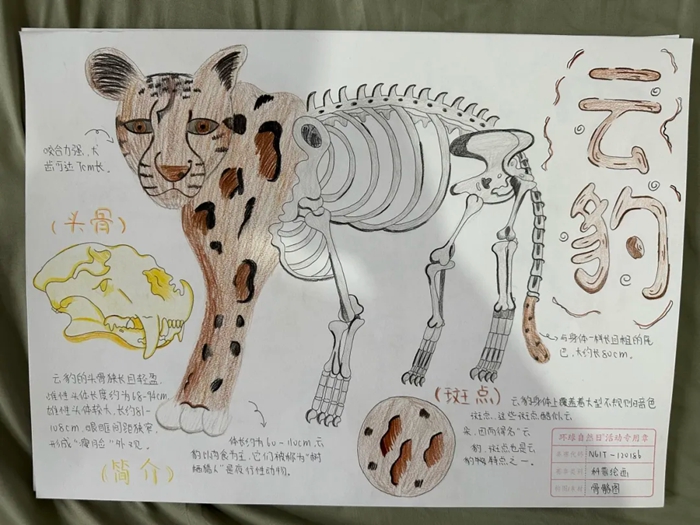 云豹
咬合力强,犬
齿可达7cm长。
(头骨)
云豹的头骨狭长且轻盈.
雌性头体长度约为68-94cm.
雄性头体较大,长约81-
108cm,眼眶间距狭窄
形成"瘦脸"外观.
(简介)
体长约为60-110cm,云
豹以肉食为主,它们被称为"树
栖猎人"是夜行性动物.
与身体一样长且粗的尾
巴,大约长80cm.
(斑点)
云豹身体上覆盖着大型不规则暗色
斑点,这些斑点酷似云
朵,因而得名"云
豹",斑点也是云
豹独特点之一.
环球自然日®活动专用章
N61T-120186
科普绘画
骨骼图